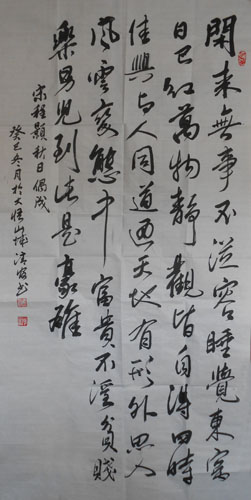 閑來無事不從容睡覺東窗
日已紅萬物靜觀皆自得四時
佳興与人同道通天地有形外思入
風雲變態中富貴不淫貧賤
樂男兒到此是豪雄
宋程顥秋日偶成
癸巳冬月於大悟山城